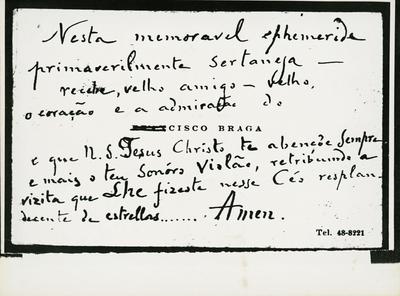 Nesta memoravel ephemeride
primaverilmente sertaneja —
recebe, velho amigo — velho,
o coração e a admiração do
CISCO BRAGA
e que N. S. Jesus Christo te abençôe sempre
e mais o teu sonóro Violão, retribuindo a
vizita que Lhe fizeste nesse Céo resplan-
decente de estrellas....... Amen.
Tel. 48-8221